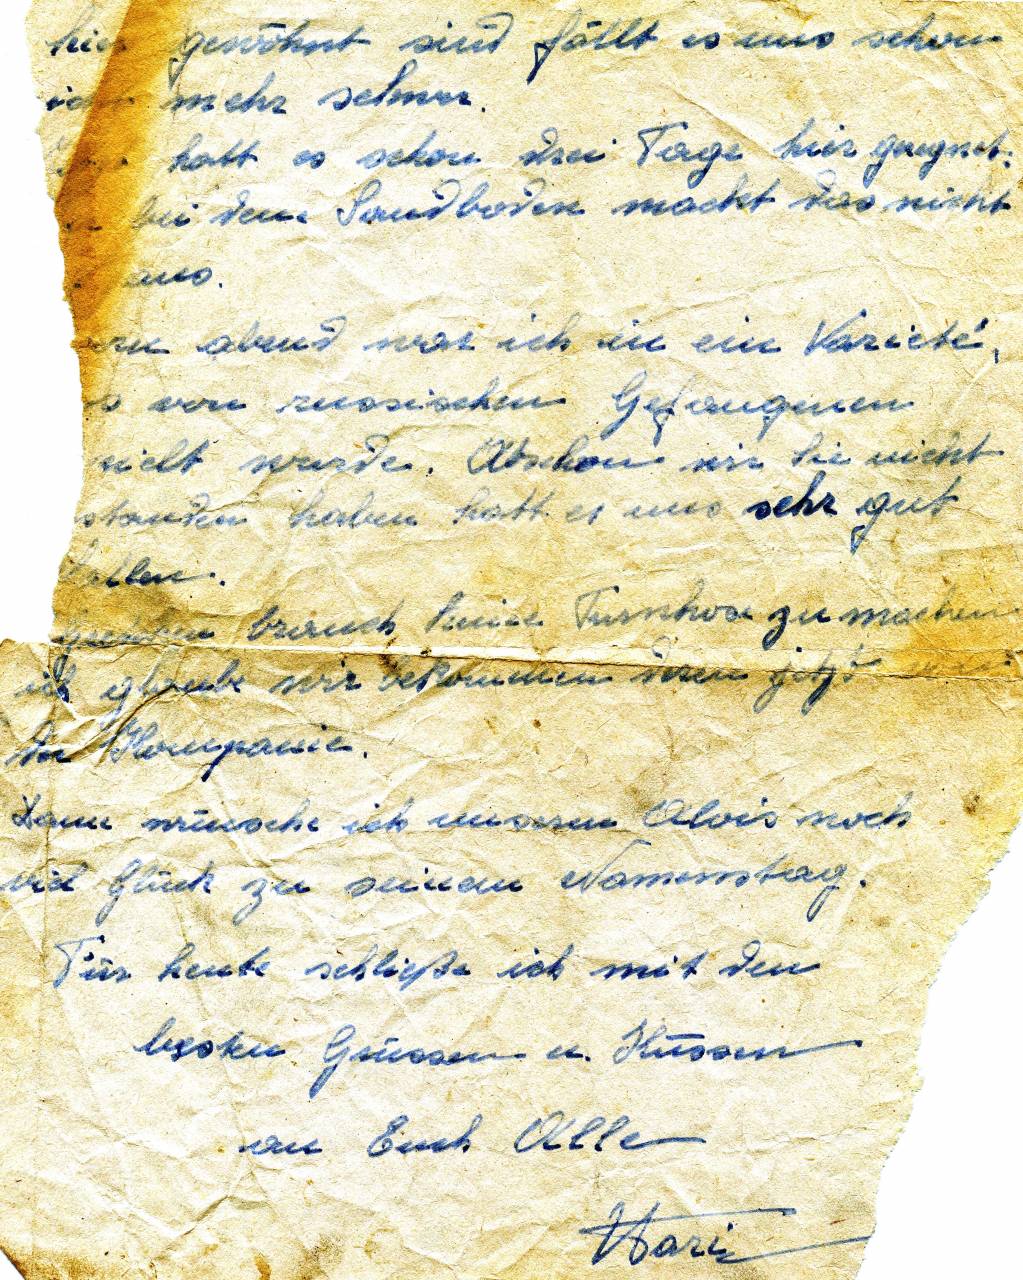 hier gewöhnt sind fällt es uns schon
mehr schwer.
hatt es schon drei Tage hier geregnet.
bei dem Sandboden macht das nicht
aus.
ern abend war ich in ein Varieté,
s von russischen Gefangenen
pielt wurde. Obschon wir sie nicht
standen haben hatt es uns sehr gut
fallen.
brauch keine Turnhose zu machen
ich glaube wir bekommen deren jetzt von
der Kompanie.
Dann wünsche ich unserem Alois noch
viel Glück zu seinem Namenstag.
Für heute schließe ich mit den
besten Grüssen u. Küssen
an Euch Alle